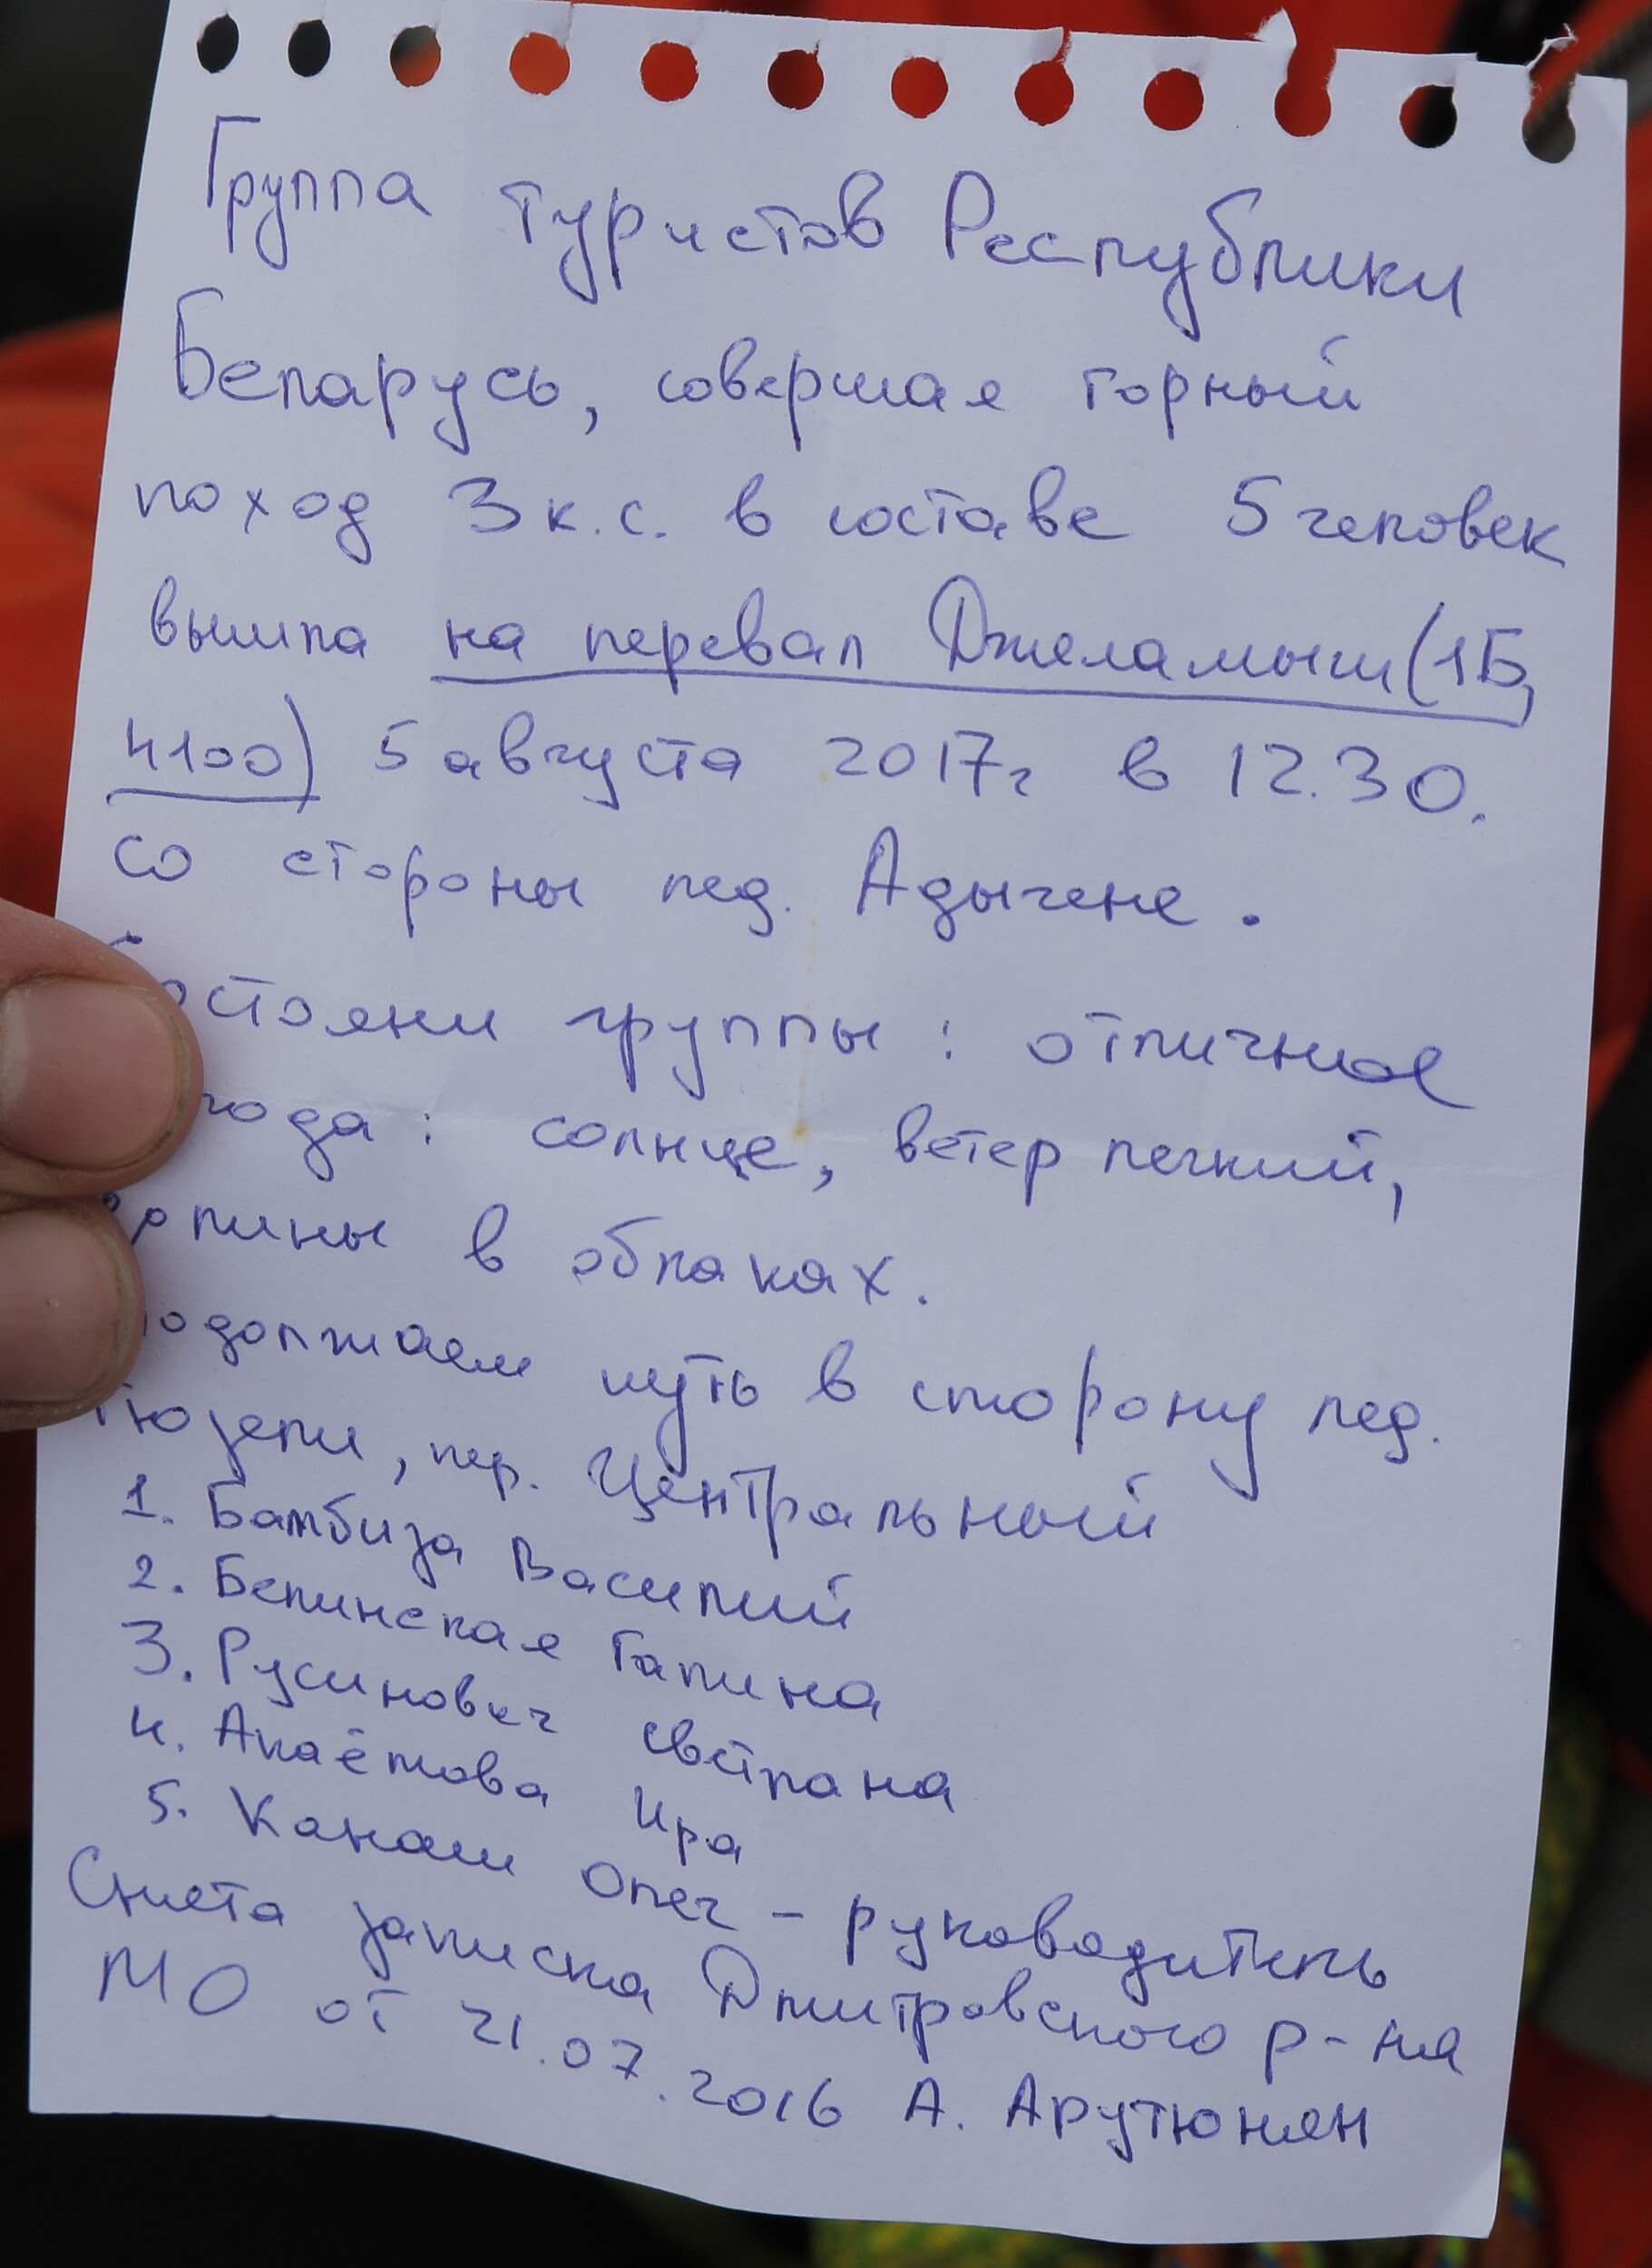 Группа туристов Республики
Беларусь, совершая горный
поход 3 к.с. в составе 5 человек
вышла на перевал Джеламыш (1Б,
4100) 5 августа 2017г в 12.30.
со стороны лед. Адыгене.
Состояни группы: отличное
погода: солнце, ветер легкий,
в облаках.
Продолжаем путь в сторону лед.
Тюзели, пер. Центральный
1. Бамбиза Василий
2. Белинская Галина
3. Русинович Светлана
4. Ира
5. Канаш Олег - руководитель
Снята записка Дмитровского р-на
МО от 21.07.2016 А. Арутюнян